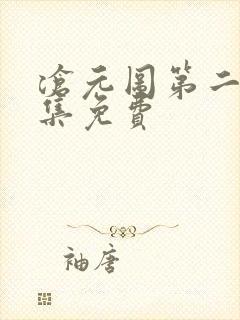 滄元圖第二
集免費
袖唐